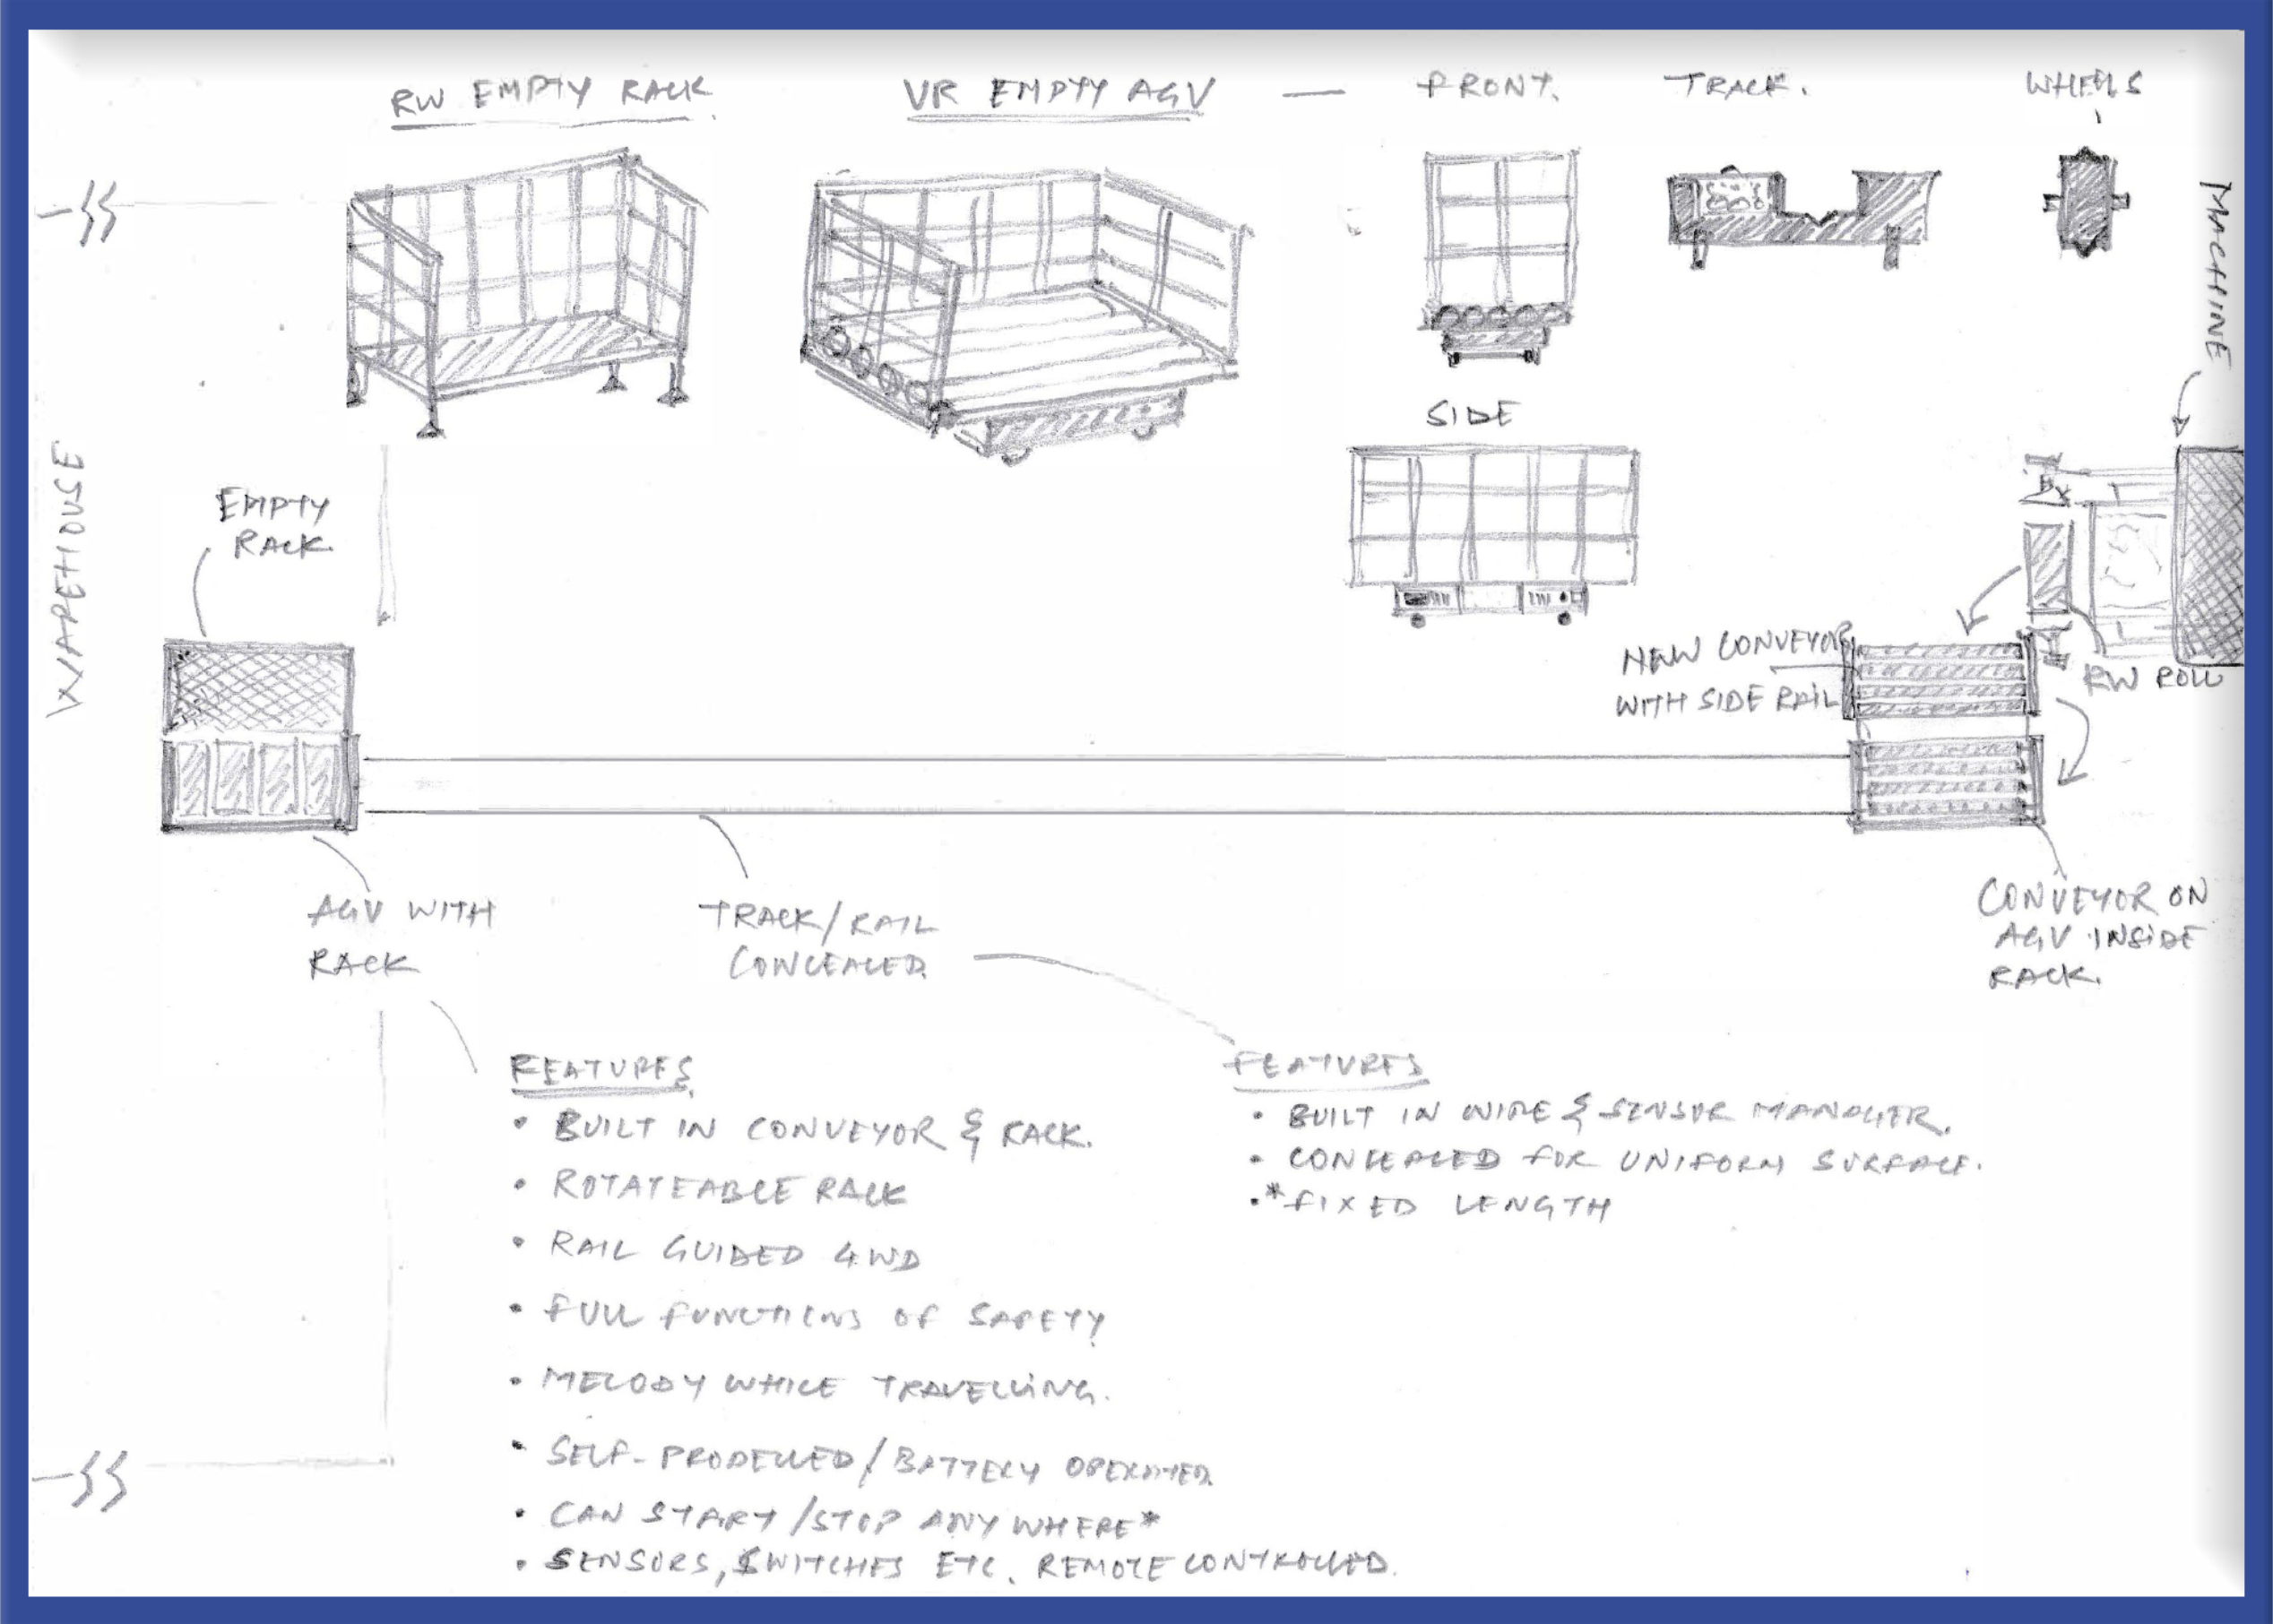 RW EMPTY RACK
VR EMPTY AGV — FRONT.
TRACK.
WHEELS
MACHINE
SIDE
WAREHOUSE
EMPTY
RACK
NEW CONVEYOR
WITH SIDE RAIL
RW ROLL
AGV WITH
RACK
TRACK/RAIL
CONCEALED
CONVEYOR ON
AGV INSIDE
RACK.
FEATURES
• BUILT IN CONVEYOR & RACK.
• ROTATEABLE RACK
• RAIL GUIDED 4WD
• FULL FUNCTIONS OF SAFETY
• MELODY WHILE TRAVELLING.
• SELF-PROPELLED/BATTERY OPERATED
• CAN START/STOP ANYWHERE*
• SENSORS, SWITCHES ETC. REMOTE CONTROLLED.
FEATURES
• BUILT IN WIRE & SENSOR
• CONCEALED FOR UNIFORM SURFACE.
•*FIXED LENGTH